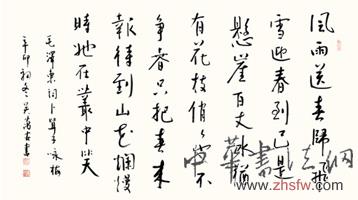 風雨送春歸飛
雪迎春到已是
懸崖百丈冰猶
有花枝俏々不
争春只把春来
報待到山花爛漫
時她在叢中笑
毛澤東詞卜算子詠梅
辛卯初冬吴
書
中華書法網
www.zhsfw.com